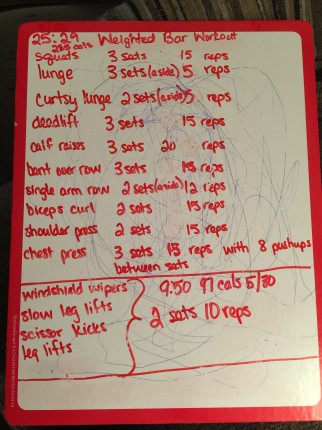 25:29 Weighted Bar Workout
285 cals
squats 3 sets 15 reps
lunge 3 sets (aside) 5 reps
curtsy lunge 2 sets (aside) 5 reps
deadlift 3 sets 15 reps
calf raises 3 sets 20 reps
bent over row 3 sets 15 reps
single arm row 2 sets (aside) 12 reps
biceps curl 2 sets 15 reps
shoulder press 2 sets 15 reps
chest press 3 sets 15 reps with 8 pushups
between sets
windshield wipers 9:50 97 cals 5/30
slow leg lifts
2 sets 10 reps
scissor kicks
leg lifts